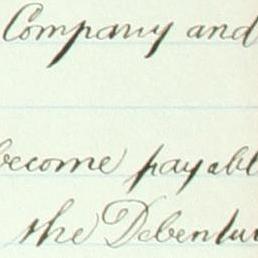 Company and
become payabl
the Debentu